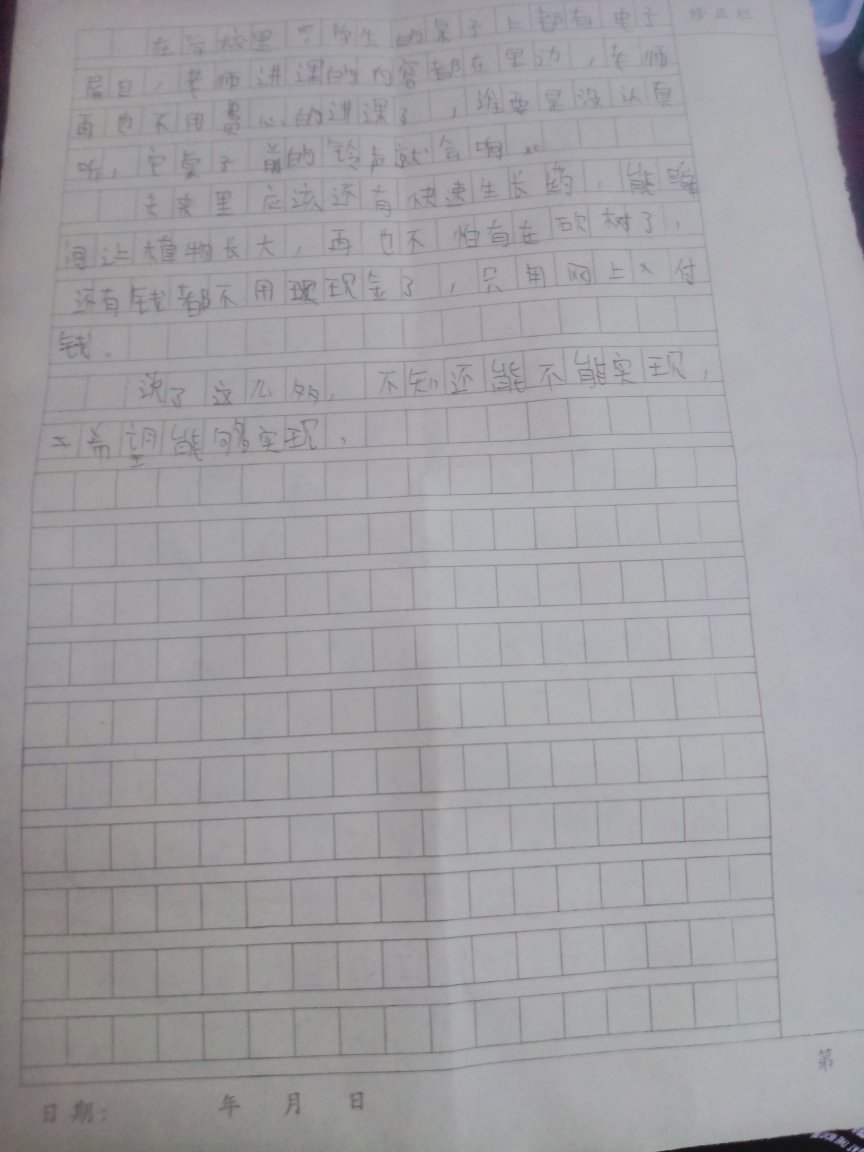 在学校里学生的桌子上都有电子
修正栏
屏目，老师讲课的内容都在里边，老师
再也不用费心的讲课了，谁要是没认真
听，它桌子前的铃声就会响。
未来里应该还有快速生长的，能瞬
间让植物长大，再也不怕有在砍树了，
还有钱都不用现金了，只用网上付
钱。
说了这么多，不知还能不能实现，
希望能够实现。
第
日期： 年 月 日